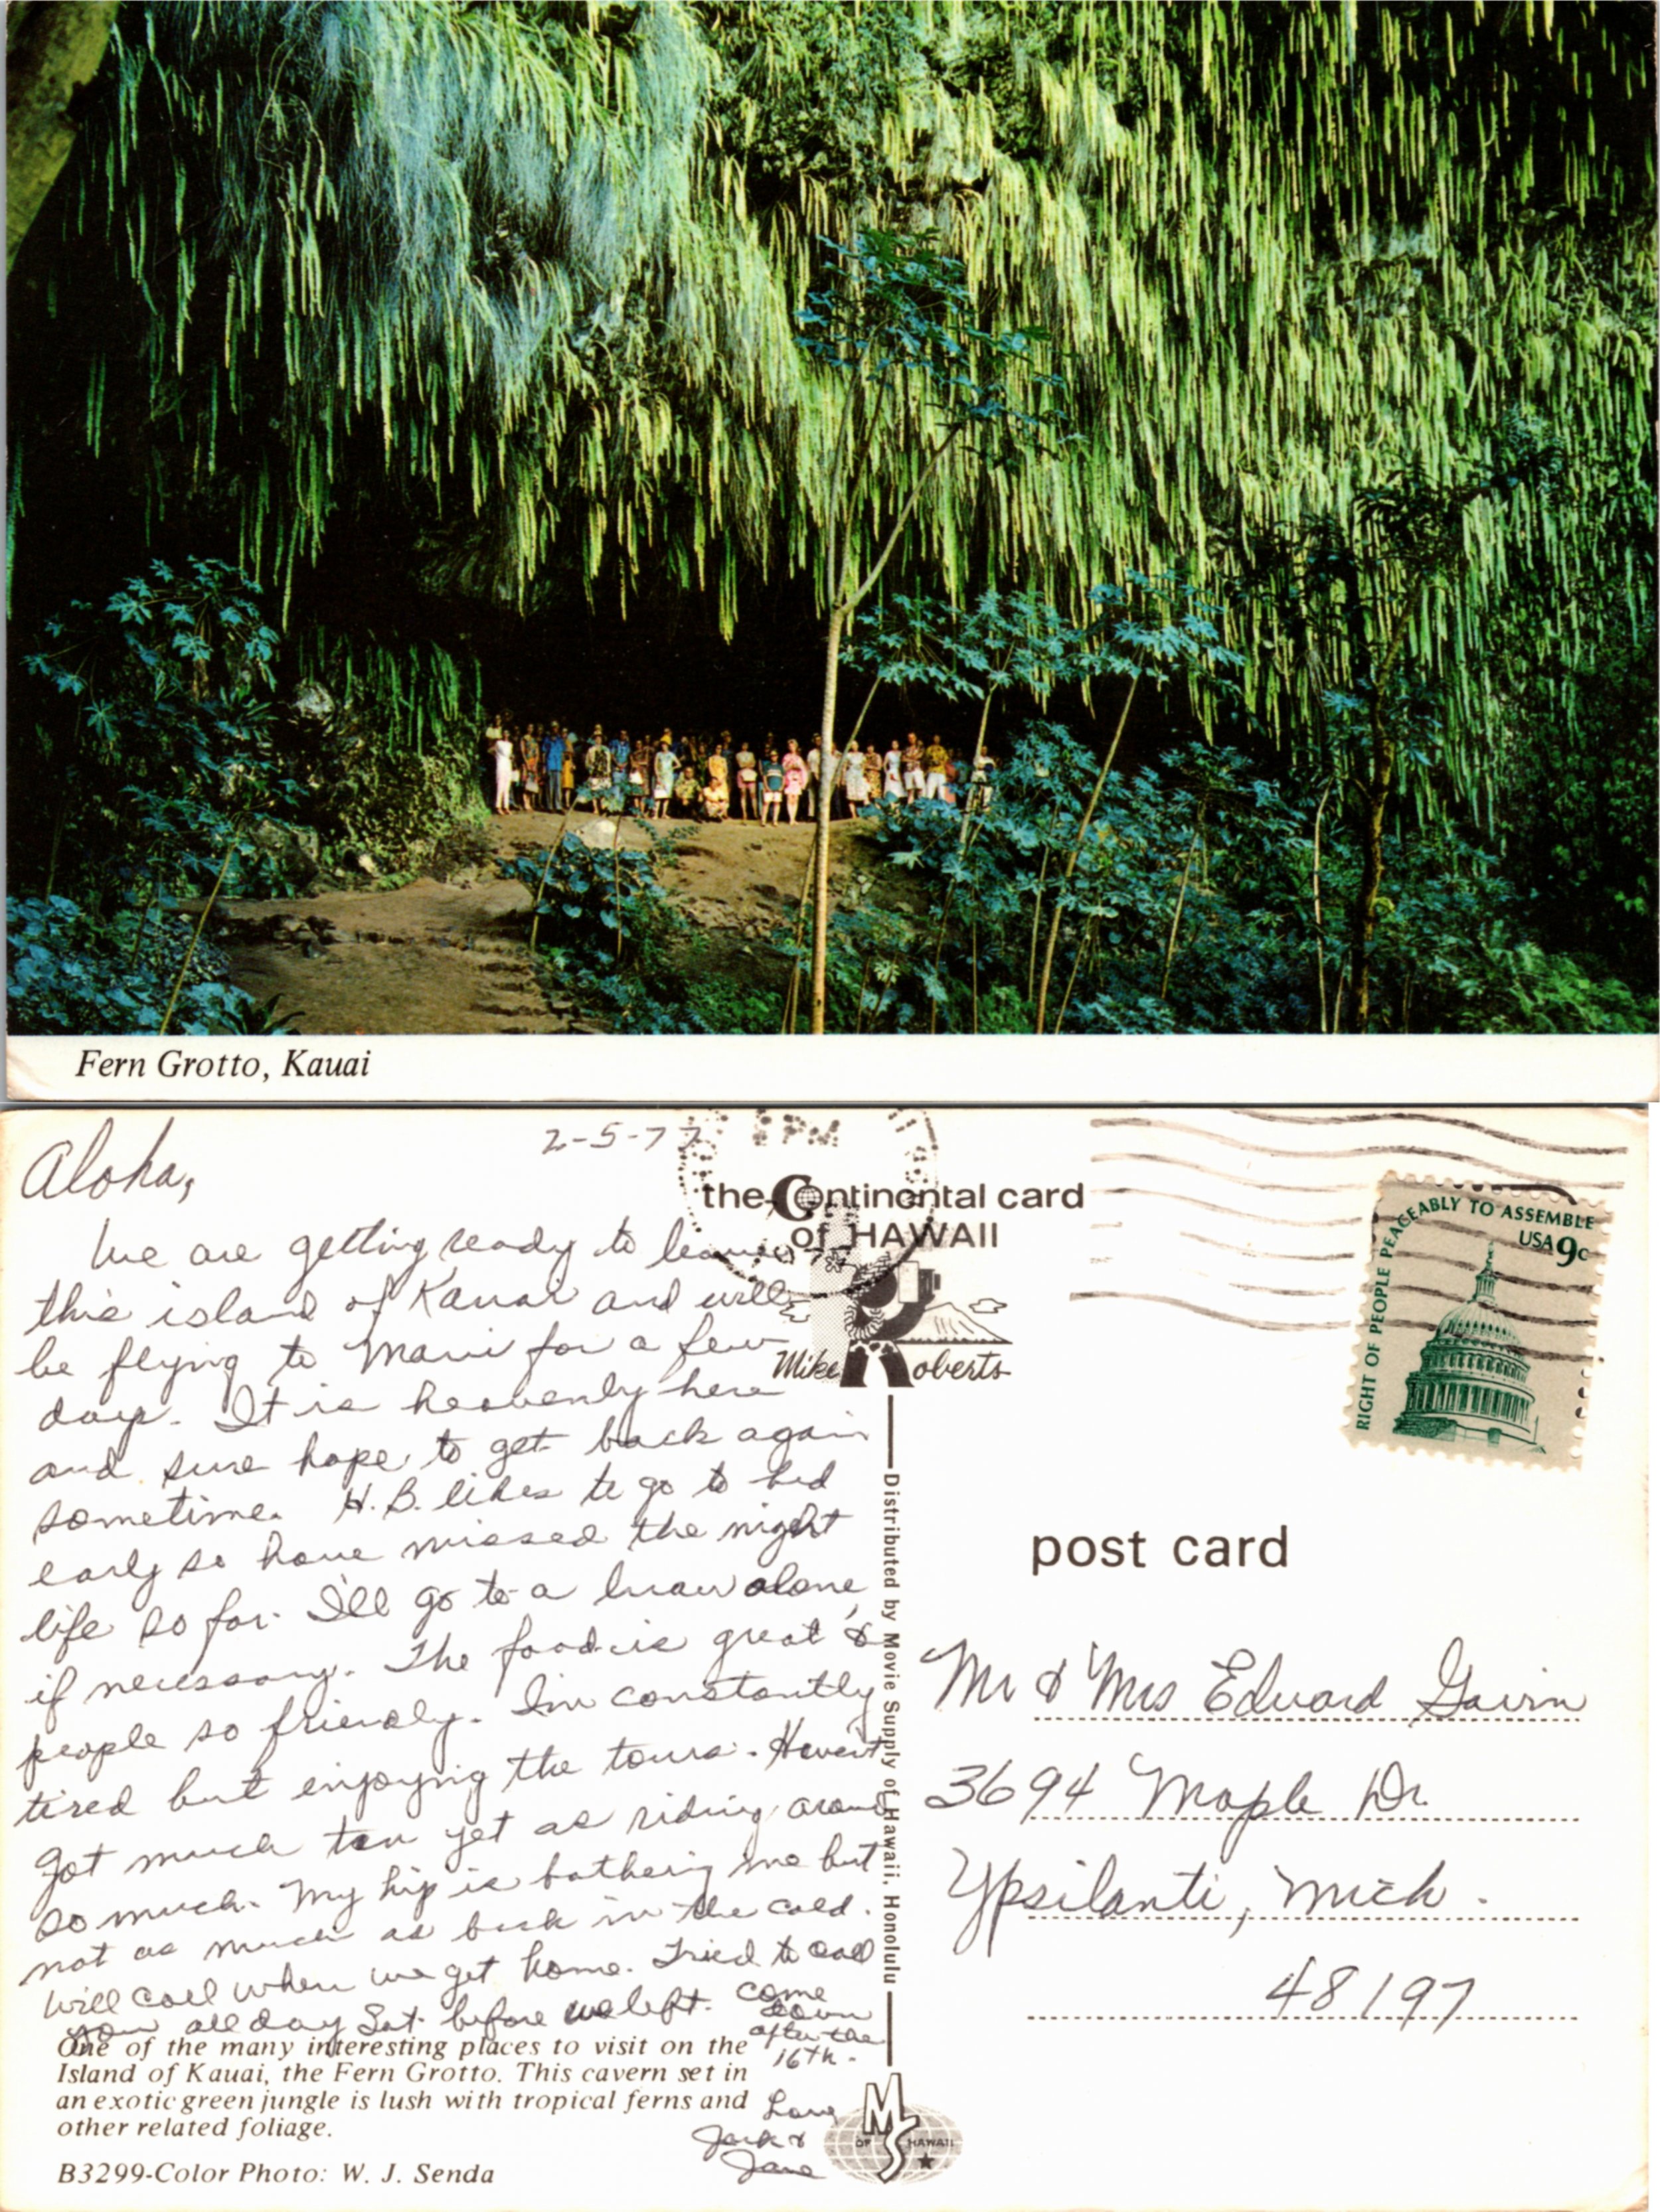 Fern Grotto, Kauai
2-5-77
PM
Aloha,
We are getting ready to leave
this island of Kauai and will
be flying to Maui for a few
days. It is heavenly here
and sure hope to get back again
sometime. H.B. likes to go to bed
early so have missed the night
life so far. I'll go to a luau alone,
if necessary. The food is great &
people so friendly. I'm constantly
tired but enjoying the tours. Haven't
got much tan yet as riding around
so much. My hip is bothering me but
not as much as back in the cold.
Will call when we get home. Tried to call
you all day Sat. before we left. Come
down
after the
16th.
Love
Jack &
Jane
the Continental card
of HAWAII
Mike Roberts
RIGHT OF PEOPLE PEACEABLY TO ASSEMBLE
USA 9c
post card
Distributed by Movie Supply of Hawaii, Honolulu
Mr & Mrs Edward Gavin
3694 Maple Dr.
Ypsilanti, Mich.
48197
One of the many interesting places to visit on the
Island of Kauai, the Fern Grotto. This cavern set in
an exotic green jungle is lush with tropical ferns and
other related foliage.
B3299-Color Photo: W. J. Senda
MS
OF HAWAII